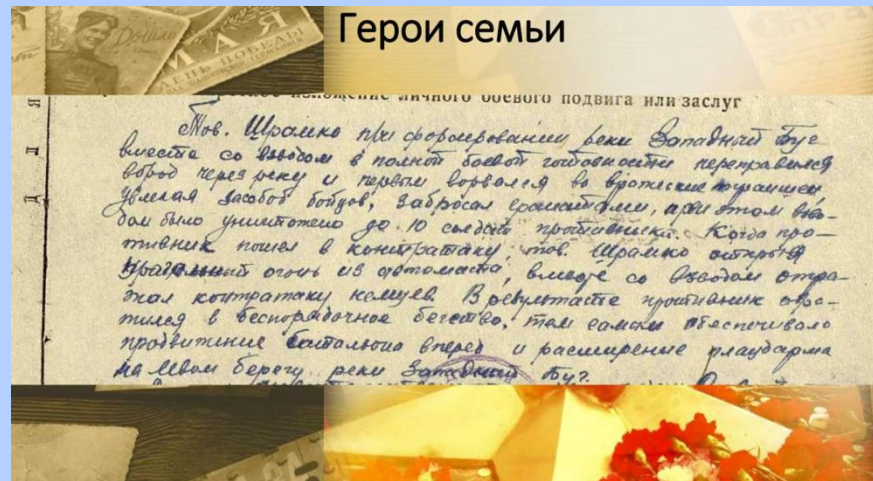 Герои семьи
Дошло
МАЯ
ДЕНЬ ПОБЕДЫ
изложение личного боевого подвига или заслуг
Д Л Я
Тов. Шрамко при форсировании реки Западный Буг
вместе со взводом в полной боевой готовности переправился
вброд через реку и первым ворвался во вражеские траншеи
увлекая за собой бойцов, забросал гранатами, при этом взво-
дом было уничтожено до 10 солдат противника. Когда про-
тивник пошел в контратаку, тов. Шрамко открыл
ураганный огонь из автомата, вместе со взводом отра-
жал контратаку немцев. В результате противник обра-
тился в беспорядочное бегство, тем самым обеспечивало
продвижение батальона вперед и расширение плацдарма
на левом берегу реки Западный Буг.